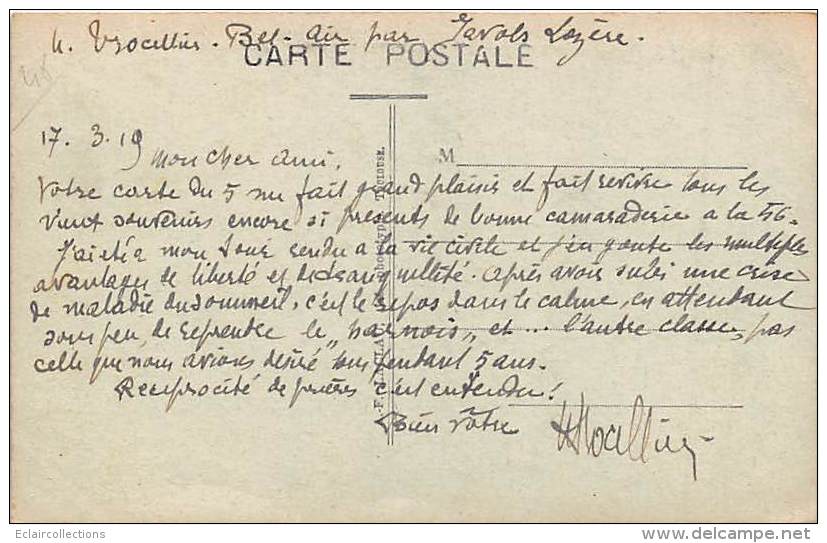 H. Trocellier - Bel-Air par Javols Lozère.
CARTE POSTALE
17.3.19
Mon cher ami,
M
Votre carte du 5 me fait grand plaisir et fait revivre tous les
vieux souvenirs encore si présents de bonne camaraderie à la 56.
J'ai été à mon tour rendu à la vie civile et j'en goute les multiples
avantages de liberté et de tranquillité. Après avoir subi une crise
de maladie du sommeil, c'est le repos dans le calme, en attendant
sous peu, de reprendre le "harnois" et ... l'autre classe, pas
celle que nous avions désiré tous pendant 5 ans.
Réciprocité de prières c'est entendu!
Bien vôtre
HTrocellier
TOULOUSE.
Eclaircollections
www.delcampe.net